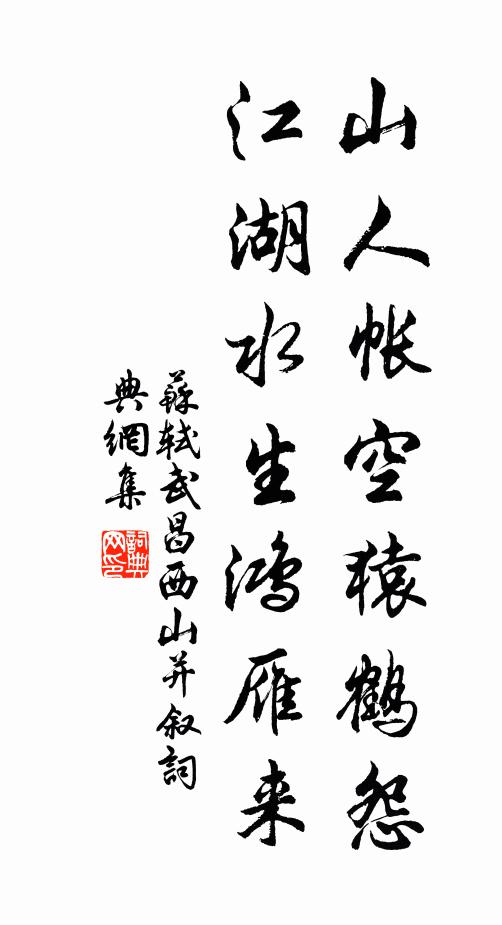 山人帐空猿鹤怨
江湖水生鸿雁来
蘇軾武昌西山并叙詞
典網集
詞典
网印